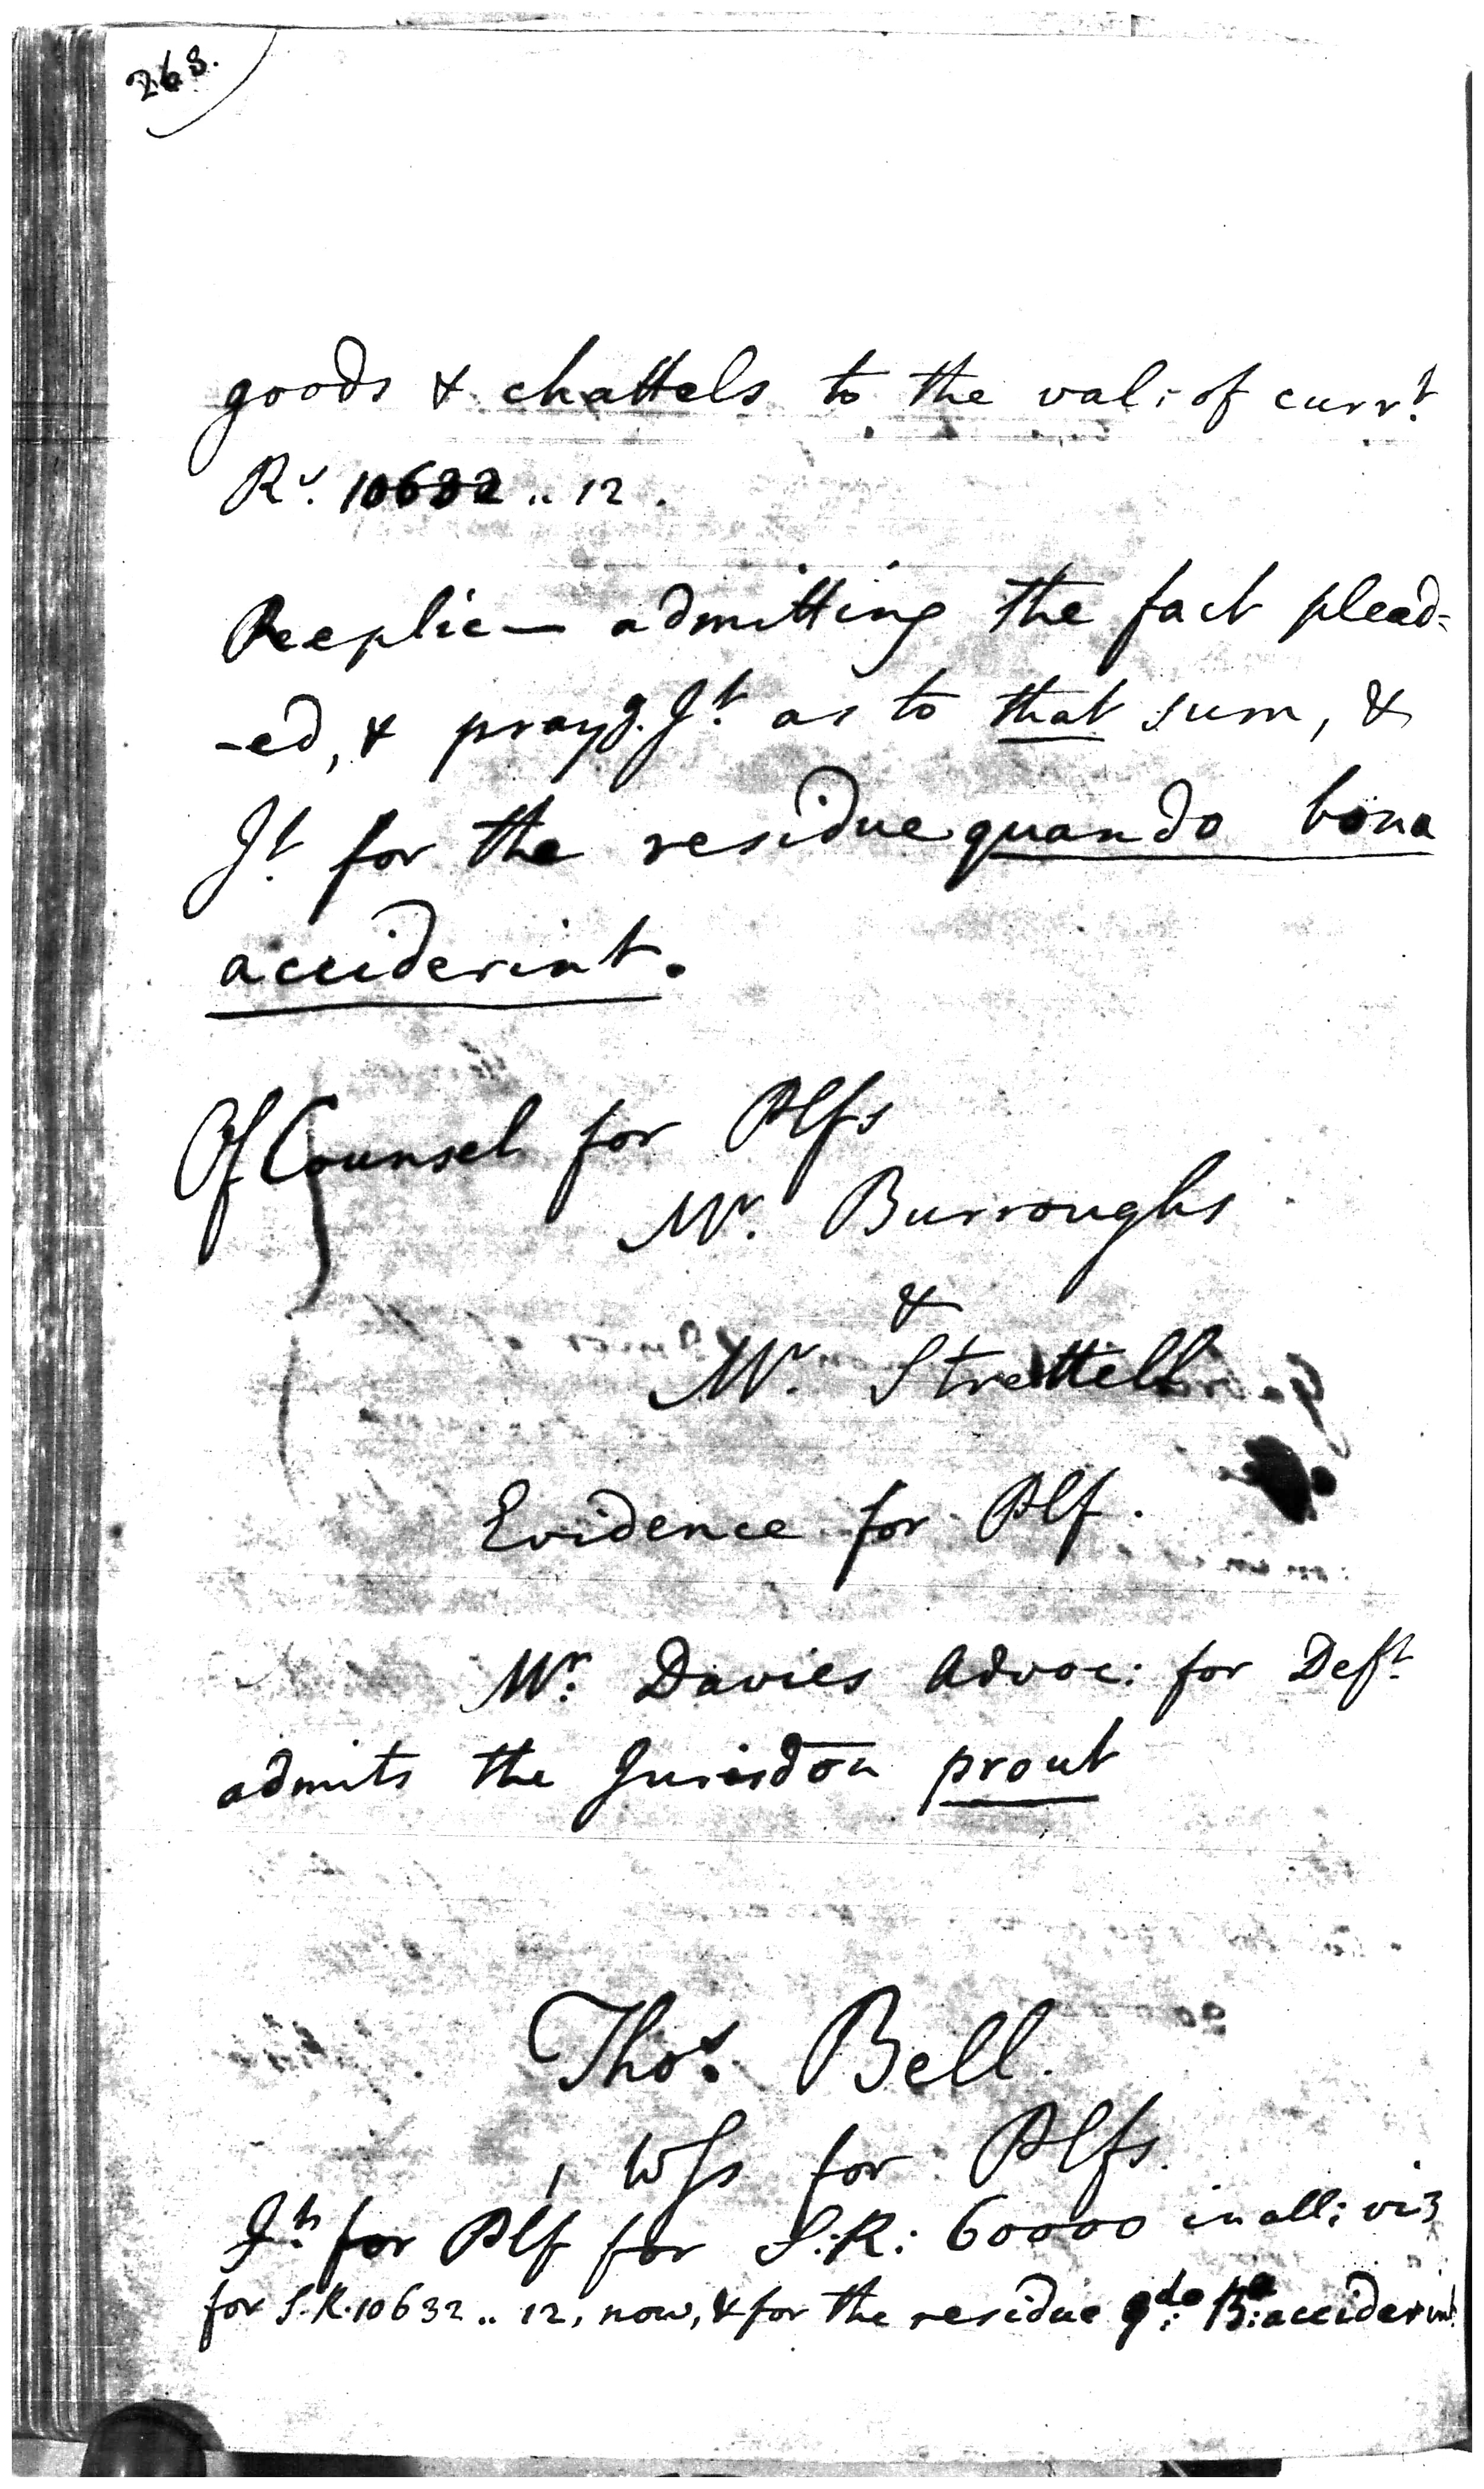 268.
goods & chattels to the val: of curr.t
R.s 10632 .. 12.
Replic— admitting the fact plead=
-ed, & pray.g J.t as to that sum, &
J.t for the residue quando bona
acciderint.
Of Counsel for Plfs
Mr. Burroughs
&
Mr. Strettell
Evidence for Plf.
Mr. Davies Advoc: for Def.t
admits the Jurisdon prout
Tho.s Bell.
1 Wss for Plfs.
J.t for Plf for S.R: 60000 in all; viz
for S.R. 10632 .. 12, now, & for the residue q.do B.a acciderint